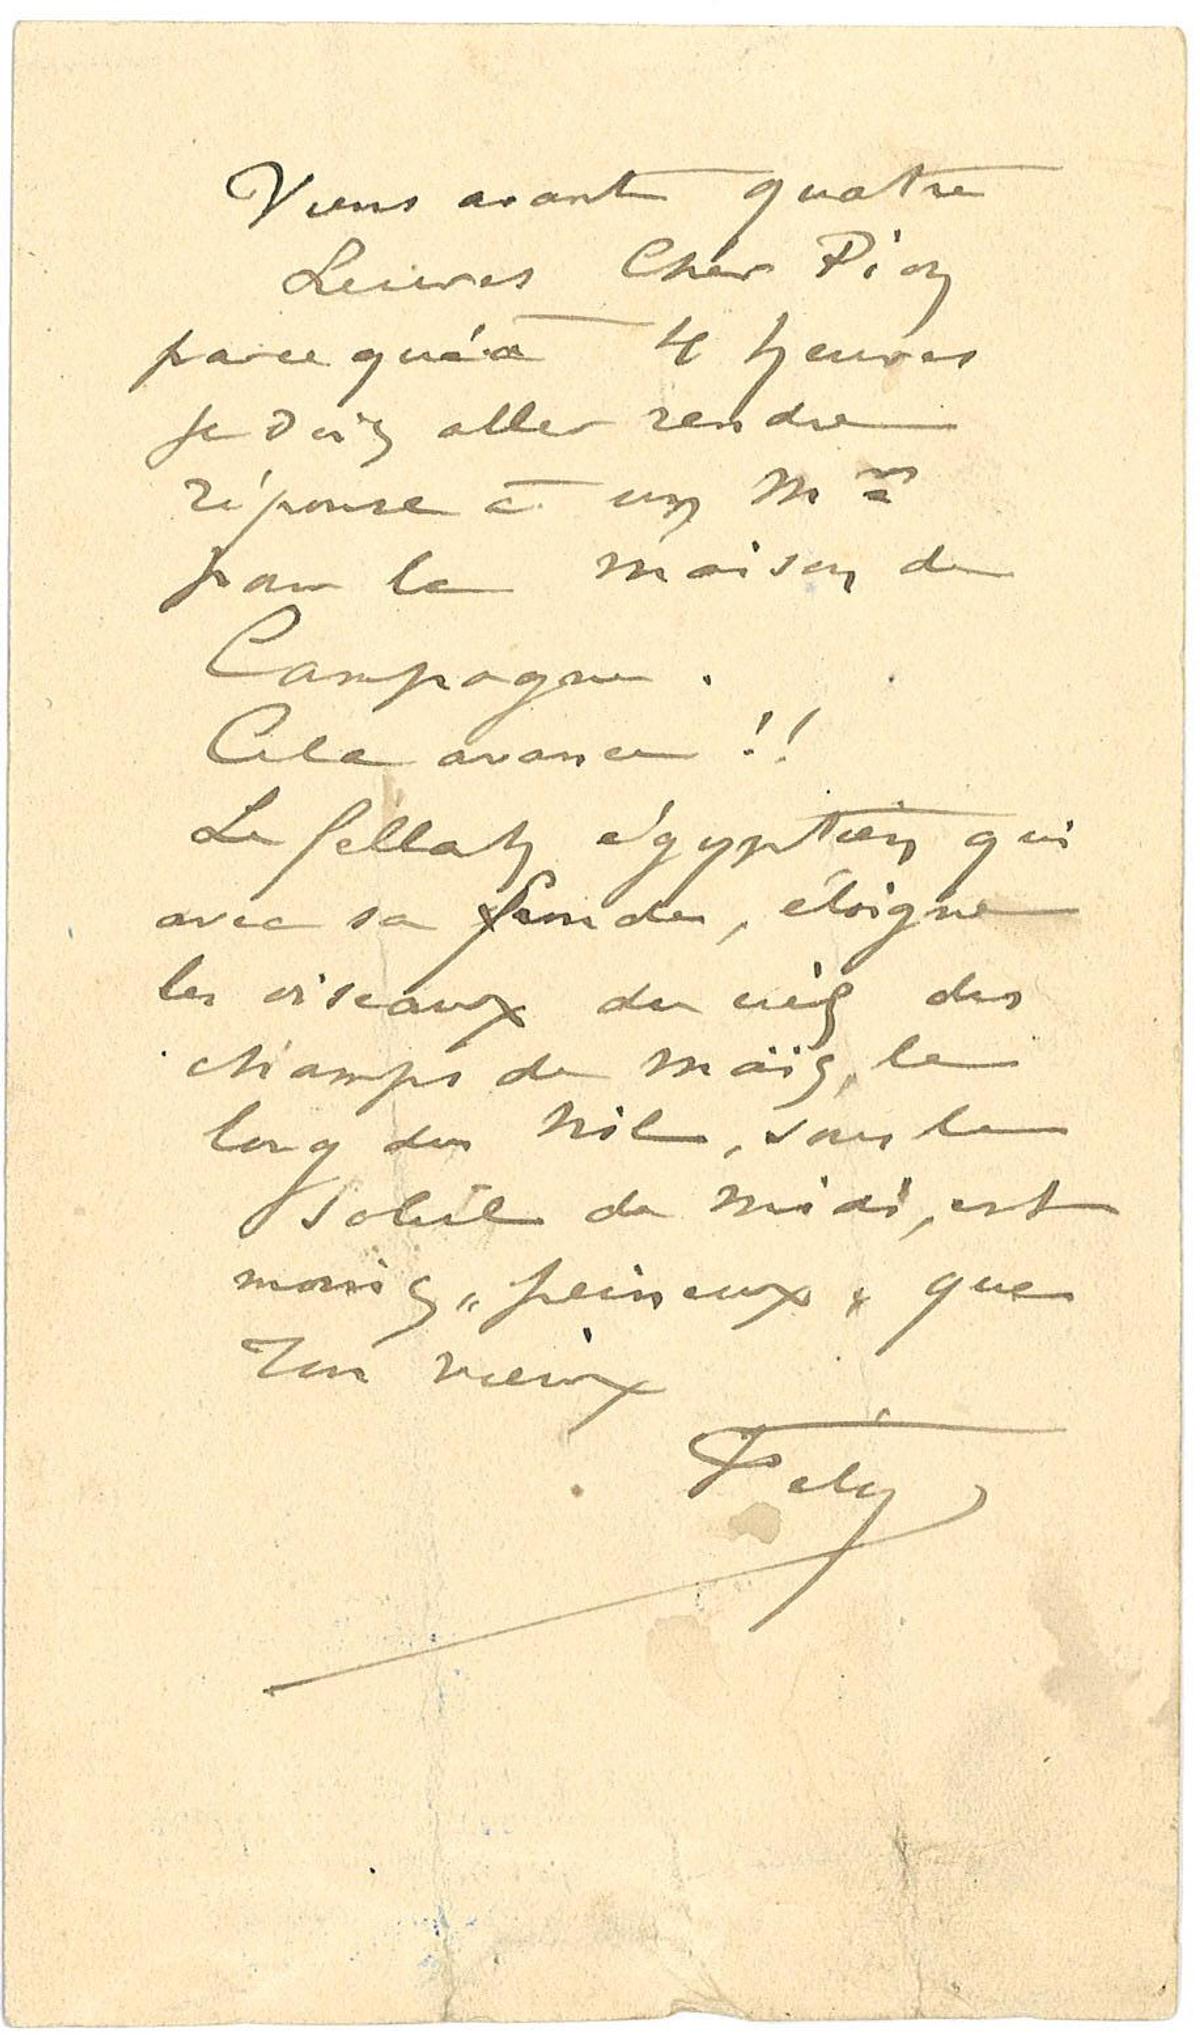 Viens avant quatre
heures Cher Pion
parce qu'à 4 heures
je dois aller rendre
réponse à un
pour la maison de
Campagne.
Cela avance !!
Le fellah égyptien qui
avec sa fronde, éloigne
les oiseaux du ciel des
champs de maïs, le
long du Nil, sous le
soleil de midi, est
moins „peineux" que
Ton vieux
Fély